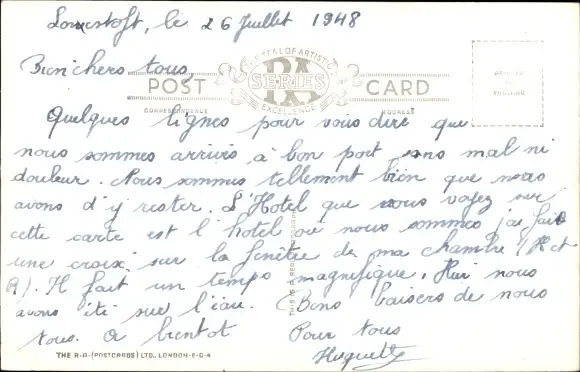 Lowestoft, le 26 Juillet 1948
THE SEAL OF ARTISTIC
RA
SERIES
EXCELLENCE
Bien chers tous,
POST CARD
CORRESPONDENCE ADDRESS
PRINTED
IN
ENGLAND
Quelques lignes pour vous dire que
nous sommes arrivés à bon port, sans mal ni
douleur. Nous sommes tellement bien que nous
avons d'y rester. L'Hotel que vous voyez sur
cette carte est l'hotel où nous sommes j'ai fait
une croix sur la fenêtre de ma chambre (H et
R). Il fait un temps magnifique. Hier nous
avons été sur l'eau. Bons baisers de nous
tous. A bientot Pour tous
Huguette
THIS IS A REAL
THE R.A. (POSTCARDS) LTD., LONDON. E.C.4